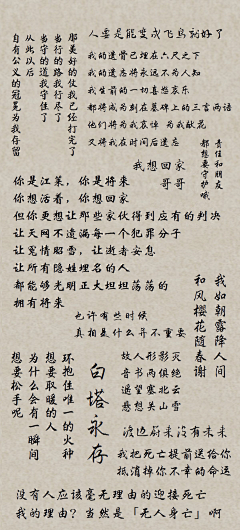 人要是能变成飞鸟就好了
那美好的仗我已经打完了
当行的路我行尽了
当守的道我守住了
从此以后
自有公义的冠冕为我存留
我的遗骨已埋在六尺之下
我的遗志将永远不为人知
我生前的一切喜怒哀乐
都将成为刻在墓碑上的三言两语
他们将为我哀悼 为我献花
又将我在时间后遗忘
责任和朋友
都想要守护哦
我想回家
哥哥
你是江莱，你是将来
你想活着，你想回家
但你更想让那些家伙得到应有的判决
让天网不遗漏每一个犯罪分子
让冤情昭雪，让逝者安息
让所有隐姓埋名的人
都能够光明正大坦坦荡荡的
拥有将来
我如朝露降人间
和风樱花随春谢
也许有些时候
真相是什么并不重要
环抱住唯一的火种
想要取暖的人
为什么会有一瞬间
想要松手呢
白塔永存
故人形影灭
音书两俱绝
遥望塞北云
悲想关山雪
渡边蔚来没有未来
我把死亡提前送给你
抵消掉你不幸的命运
没有人应该毫无理由的迎接死亡
我的理由？当然是「无人身亡」啊